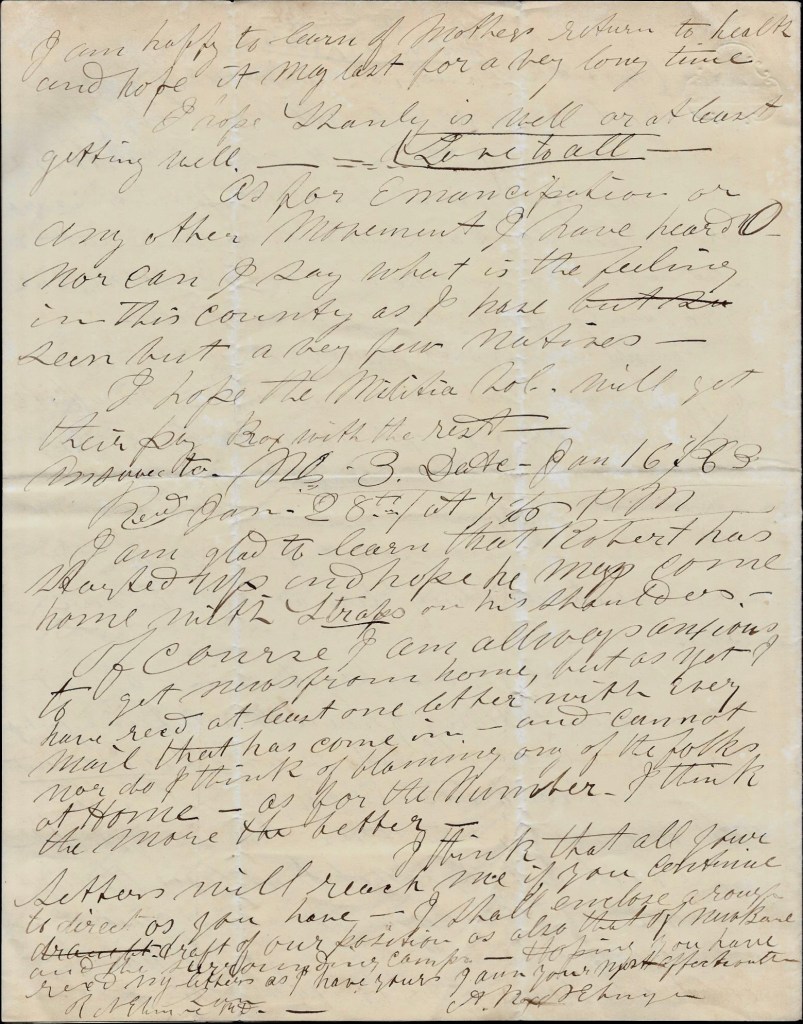 I am happy to learn of Mothers return to health
and hope it may last for a very long time
I hope Stanly is well or at least
getting well. — Love to all —
As for Emancipation or
any other Movement I have heard 0
nor can I say what is the feeling
in this county as I have but
seen but a very few natives —
I hope the Militia will get
their pay with the rest —
No. 3. Date - Jan 16th/63
Recd Jan. 28th at 7 PM
I am glad to learn that Robert has
started up and hope he may come
home with Straps on his shoulders. —
Of course I am allways anxious
to get news from home, but as yet I
have recd at least one letter with every
mail that has come in — and cannot
nor do I think of blaming any of the folks
at Home — as for the Number — I think
the more the better —
I think that all your
letters will reach me if you continue
to direct as you have — I shall enclose a rough
draught draft of our position as also that of
and the surrounding camps — Hoping you have
recd my letters as I have yours I am your most affectionate
Son